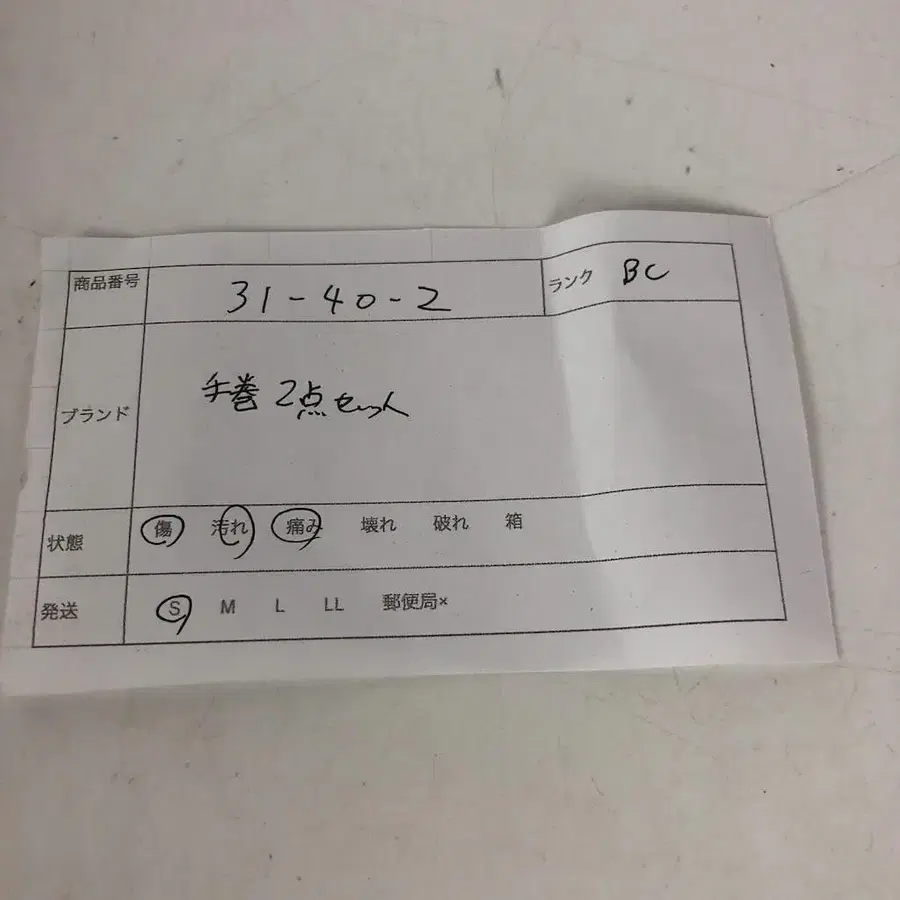 商品番号 31-40-2 ランク BC
ブランド 手巻 2点セット
状態 傷 汚れ 痛み 壊れ 破れ 箱
発送 S M L LL 郵便局×